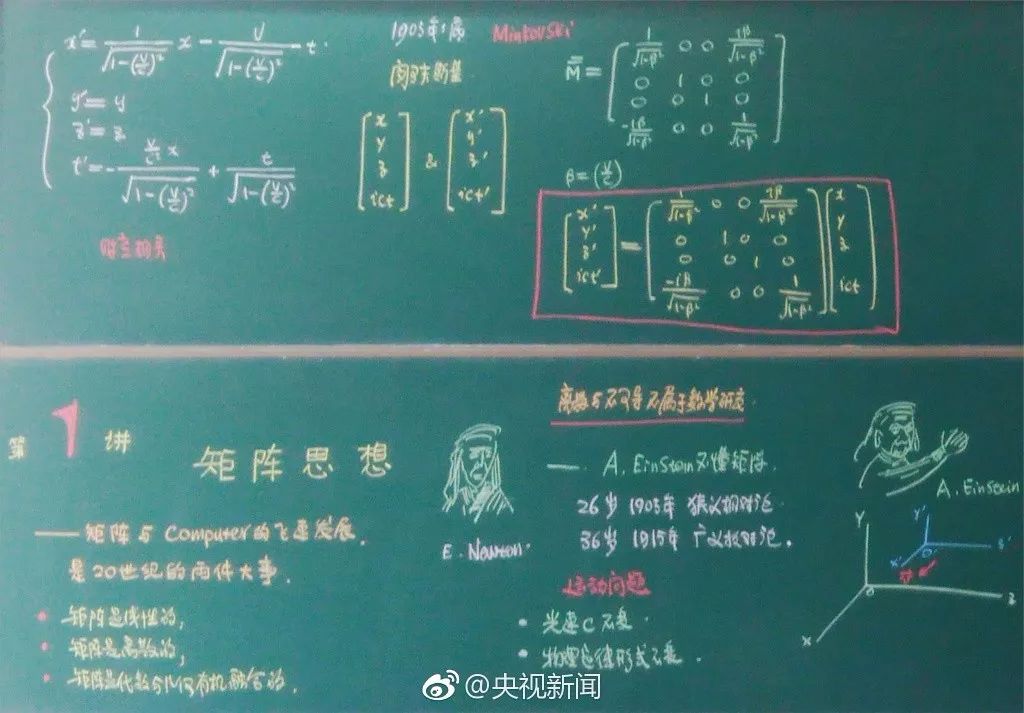 x' = 1/√(1-(v/c)²) x - v/√(1-(v/c)²) t
y' = y
z' = z
t' = - (v/c²)x/√(1-(v/c)²) + t/√(1-(v/c)²)
时空相关
1905年 Minkovski
[x y z ict] & [x' y' z' ict']
M =
1/√(1-β²) 0 0 iβ/√(1-β²)
0 1 0 0
0 0 1 0
-iβ/√(1-β²) 0 0 1/√(1-β²)
β = (v/c)
[x' y' z' ict'] =
1/√(1-β²) 0 0 iβ/√(1-β²)
0 1 0 0
0 0 1 0
-iβ/√(1-β²) 0 0 1/√(1-β²)
[x y z ict]
第1讲
矩阵思想
——矩阵与Computer的飞速发展,
是20世纪的两件大事.
• 矩阵是线性的;
• 矩阵是离散的;
• 矩阵是代数与几何有机融合的.
E. Newton.
离散与不可导不属于数学研究.
— A. Einstein不懂矩阵.
26岁 1905年 狭义相对论.
36岁 1915年 广义相对论.
运动问题
• 光速C不变.
• 物理定律形式不变.
A. Einstein
Y
X
Z
o
Y'
X'
Z'
o'
@央视新闻